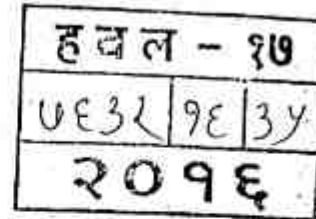 हवल - १७
७६३२ १६ ३५
२०१६